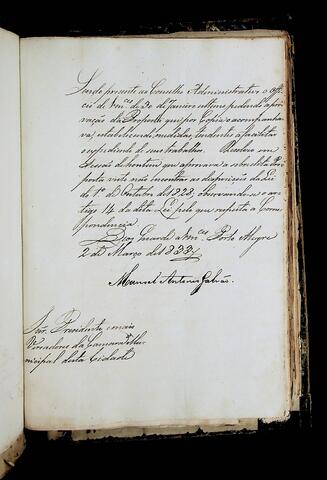 Sendo presente ao Conselho Administrativo o offi-
cio de Vm.ces de 30 de Janeiro ultimo pedindo approvação
da Proposta que por Copia o acompanha
va, estabelecendo medidas, tendentes a facilitar
o expediente de seus trabalhos. Resolveo em
Sessão de hontem que approvava a sobredita Pro
posta visto não encontrar as disposições da Lei
do 1.º de Outubro de 1828, observando-se o ar-
tigo 14 da dita Lei pelo que respeita a Corres
pondencia.
Deos Guarde a Vm.ces Porto Alegre
2 de Março de 1833
Manoel Antonio Galvão.
Snr. Presidente e mais
Vereadores da Camara Mu-
nicipal desta Cidade